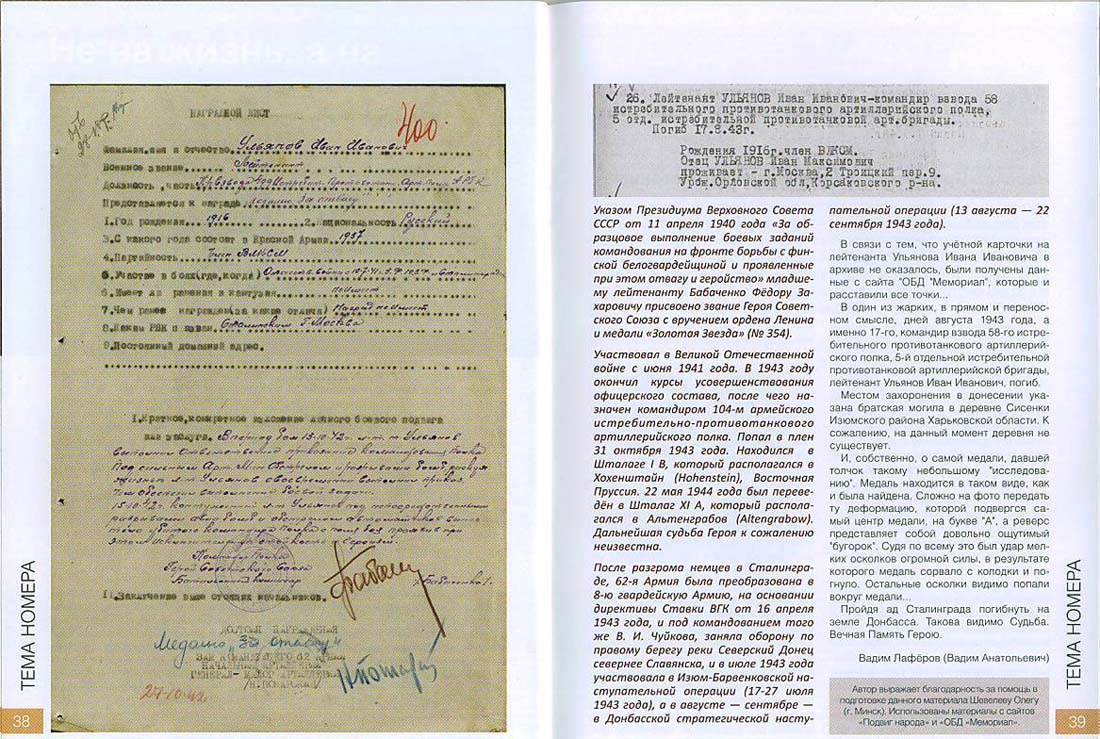 Не на жизнь, а на
НАГРАДНОЙ ЛИСТ
400
Фамилия, имя и отчество Ульянов Иван Иванович
Военное звание Лейтенант
Должность, часть
Представляется к награде Медали За отвагу
1. Год рождения 1916 2. Национальность Русский
3. С какого года состоит в Красной Армии 1937
4. Партийность ВЛКСМ
5. Участие в боях (где, когда)
6. Имеет ли ранения и контузии
7. Чем ранее награжден (за какие отличия)
8. Каким РВК призван Сталинским г. Москва
9. Постоянный домашний адрес.
1. Краткое, конкретное изложение личного боевого подвига
или заслуг. В период боя 15-10-42г. л-т т. Ульянов
Командир Полка
Герой Советского Союза
Батальонный комиссар
11. Заключение выше стоящих начальников.
ДОСТОИН НАГРАЖДЕНИЯ
Медалью "За отвагу"
ЗАМ КОМАНДУЮЩЕГО 62 АРМИИ
НАЧАЛЬНИК АРТИЛЛЕРИИ
ГЕНЕРАЛ-МАЙОР АРТИЛЛЕРИИ
/Н. ПОЖАРСКИЙ/
27-10-42
ТЕМА НОМЕРА
38
26. Лейтенант УЛЬЯНОВ Иван Иванович-командир взвода 58
истребительного противотанкового артиллерийского полка,
5 отд. истребительной противотанковой арт.бригады.
Погиб 17.8.43г.
Рождения 1916г.член ВЛКСМ.
Отец УЛЬЯНОВ Иван Максимович
проживает - г.Москва,2 Троицкий пер.9.
Урож.Орловской обл,Корсаковского р-на.
Указом Президиума Верховного Совета
СССР от 11 апреля 1940 года «За об-
разцовое выполнение боевых заданий
командования на фронте борьбы с фин-
ской белогвардейщиной и проявленные
при этом отвагу и геройство» младше-
му лейтенанту Бабаченко Фёдору За-
харовичу присвоено звание Героя Совет-
ского Союза с вручением ордена Ленина
и медали «Золотая Звезда» (№ 354).
Участвовал в Великой Отечественной
войне с июня 1941 года. В 1943 году
окончил курсы усовершенствования
офицерского состава, после чего на-
значен командиром 104-м армейского
истребительно-противотанкового
артиллерийского полка. Попал в плен
31 октября 1943 года. Находился в
Шталаге I B, который располагался в
Хохенштайн (Hohenstein), Восточная
Пруссия. 22 мая 1944 года был переве-
дён в Шталаг XI A, который распола-
гался в Альтенграбов (Altengrabow).
Дальнейшая судьба Героя к сожалению
неизвестна.
После разгрома немцев в Сталингра-
де, 62-я Армия была преобразована в
8-ю гвардейскую Армию, на основании
директивы Ставки ВГК от 16 апреля
1943 года, и под командованием того
же В. И. Чуйкова, заняла оборону по
правому берегу реки Северский Донец
севернее Славянска, и в июле 1943 года
участвовала в Изюм-Барвенковской на-
ступательной операции (17-27 июля
1943 года), а в августе — сентябре —
в Донбасской стратегической насту-
пательной операции (13 августа — 22
сентября 1943 года).
В связи с тем, что учётной карточки на
лейтенанта Ульянова Ивана Ивановича в
архиве не оказалось, были получены дан-
ные с сайта "ОБД "Мемориал", которые и
расставили все точки...
В один из жарких, в прямом и перенос-
ном смысле, дней августа 1943 года, а
именно 17-го, командир взвода 58-го истре-
бительного противотанкового артиллерий-
ского попка, 5-й отдельной истребительной
противотанковой артиллерийской бригады,
лейтенант Ульянов Иван Иванович, погиб.
Местом захоронения в донесении ука-
зана братская могила в деревне Сисенки
Изюмского района Харьковской области. К
сожалению, на данный момент деревня не
существует.
И, собственно, о самой медали, давшей
толчок такому небольшому "исследова-
нию". Медаль находится в таком виде, как
и была найдена. Сложно на фото передать
ту деформацию, которой подвергся са-
мый центр медали, на букве "А", а реверс
представляет собой довольно ощутимый
"бугорок". Судя по всему это был удар мел-
ких осколков огромной силы, в результате
которого медаль сорвало с колодки и по-
гнуло. Остальные осколки видимо попали
вокруг медали...
Пройдя ад Сталинграда погибнуть на
земле Донбасса. Такова видимо Судьба.
Вечная Память Герою.
Вадим Лафёров (Вадим Анатольевич)
Автор выражает благодарность за помощь в
подготовке данного материала Шевелеву Олегу
(г. Минск). Использованы материалы с сайтов
«Подвиг народа» и «ОБД «Мемориал».
ТЕМА НОМЕРА
39